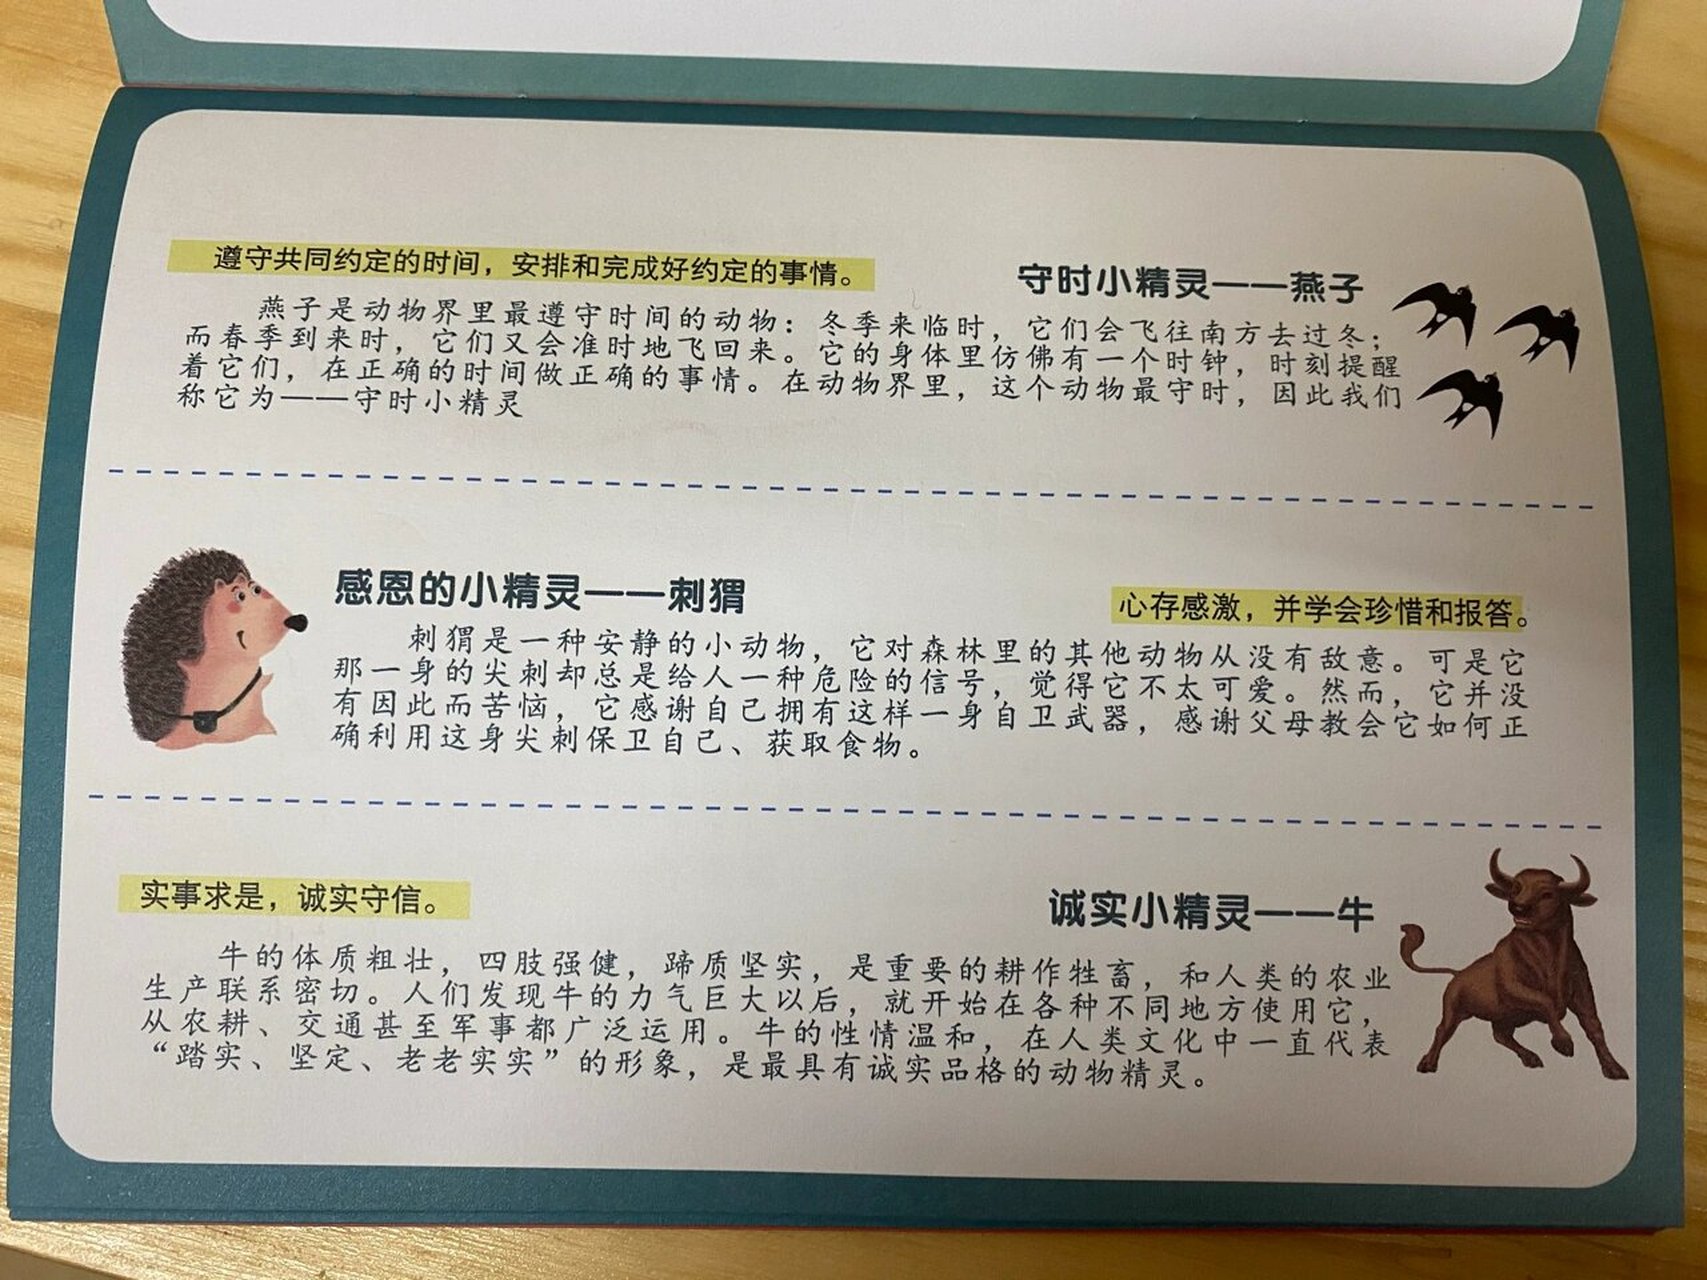 遵守共同约定的时间，安排和完成好约定的事情。
守时小精灵——燕子
燕子是动物界里最遵守时间的动物：冬季来临时，它们会飞往南方去过冬；
而春季到来时，它们又会准时地飞回来。它的身体里仿佛有一个时钟，时刻提醒
着它们，在正确的时间做正确的事情。在动物界里，这个动物最守时，因此我们
称它为——守时小精灵
感恩的小精灵——刺猬
心存感激，并学会珍惜和报答。
刺猬是一种安静的小动物，它对森林里的其他动物从没有敌意。可是它
那一身的尖刺却总是给人一种危险的信号，觉得它不太可爱。然而，它并没
有因此而苦恼，它感谢自己拥有这样一身自卫武器，感谢父母教会它如何正
确利用这身尖刺保卫自己、获取食物。
实事求是，诚实守信。
诚实小精灵——牛
牛的体质粗壮，四肢强健，蹄质坚实，是重要的耕作牲畜，和人类的农业
生产联系密切。人们发现牛的力气巨大以后，就开始在各种不同地方使用它，
从农耕、交通甚至军事都广泛运用。牛的性情温和，在人类文化中一直代表
“踏实、坚定、老老实实”的形象，是最具有诚实品格的动物精灵。